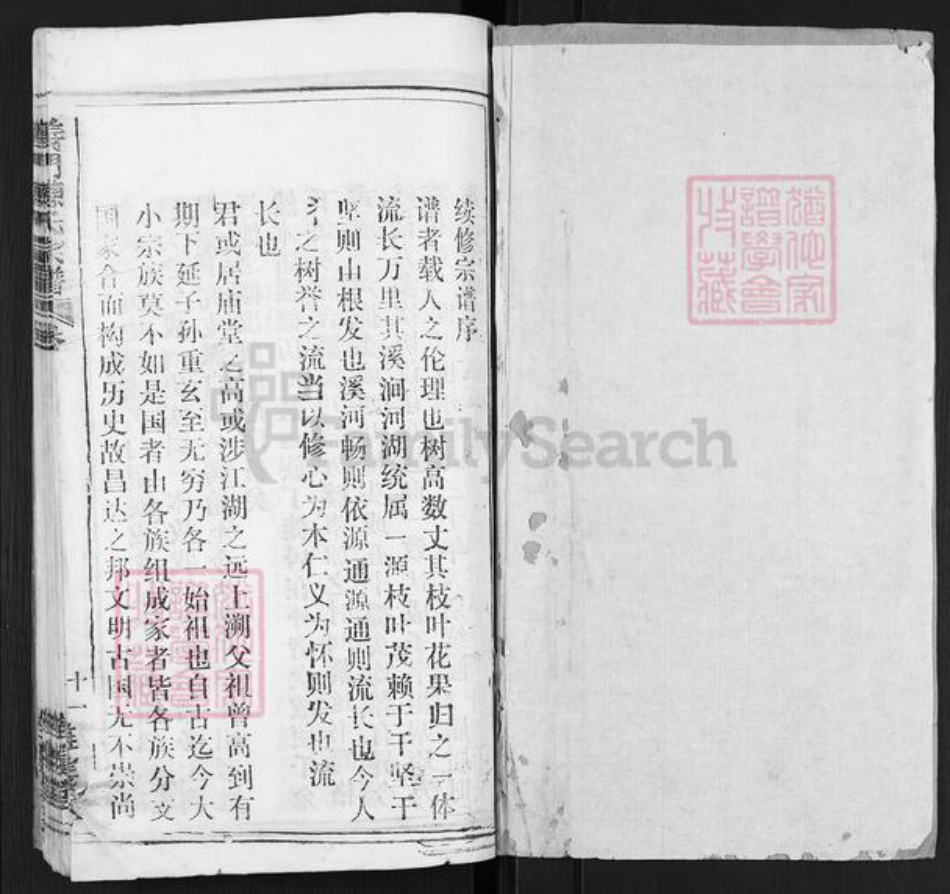 续修宗谱序
谱者载人之伦理也树高数丈其枝叶花果归之一体
流长万里其溪涧河湖统属一源枝叶茂赖于干坚干
坚则由根发也溪河畅则依源通源通则流长也今人
之树誉之流当以修心为本仁义为怀则发也流
长也
君或居庙堂之高或涉江湖之远上溯父祖曾高到有
期下延子孙重玄至无穷乃各一始祖也自古迄今大
小宗族莫不如是国者由各族组成家者皆各族分支
国家合而构成历史故昌达之邦文明古国无不崇尚
氏宗谱
卷
十一
FamilySearch
谱学会
收藏